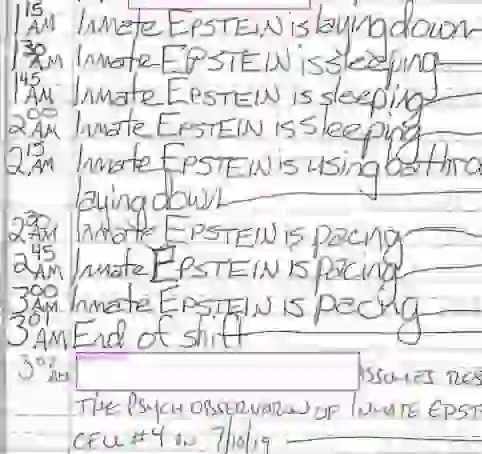 1 15 AM Inmate EPSTEIN is laying down
1 30 AM Inmate EPSTEIN is sleeping
1 45 AM Inmate EPSTEIN is sleeping
2 00 AM Inmate EPSTEIN is sleeping
2 15 AM Inmate EPSTEIN is using bathro
laying down
2 30 AM Inmate EPSTEIN is pacing
2 45 AM Inmate EPSTEIN is pacing
3 00 AM Inmate EPSTEIN is pacing
3 01 AM End of shift
3 01 AM ASSUMES RES
THE PSYCH OBSERVATION OF INMATE EPST
CELL #4 ON 7/10/19